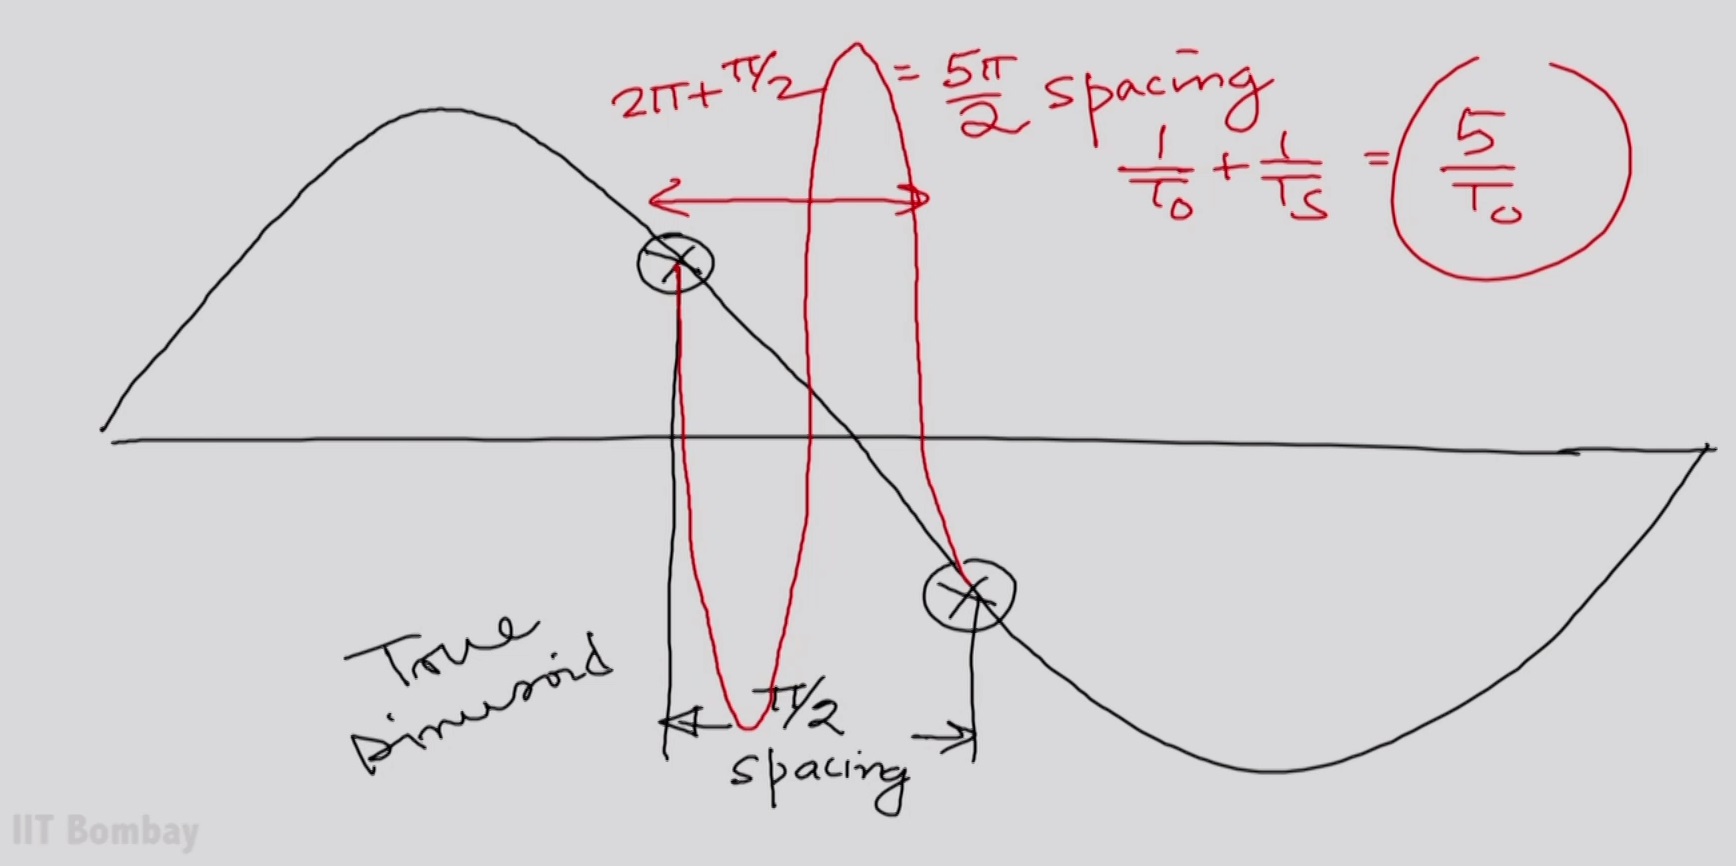 2π + π/2 = 5π/2 spacing
1/T₀ + 1/Tₛ = 5/T₀
True
sinusoid
π/2
spacing
IIT Bombay